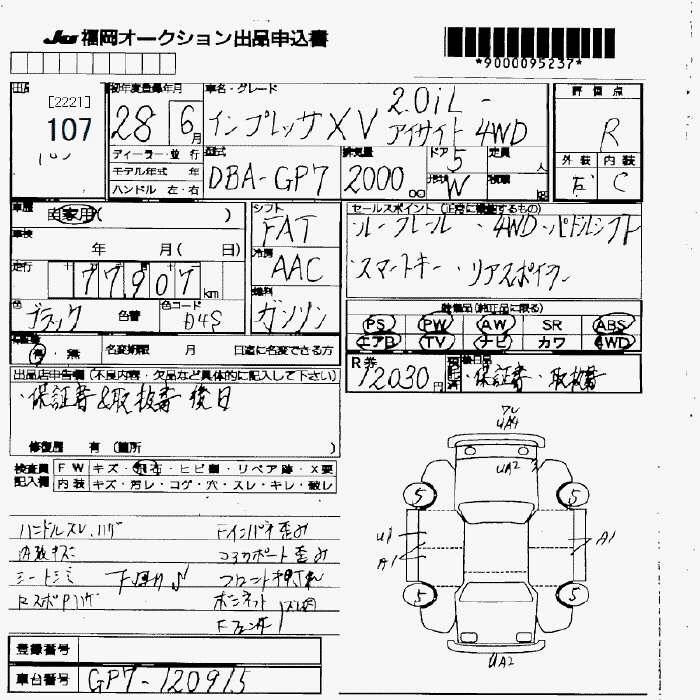 JU 福岡オークション出品申込書
*9000095237*
[2221]
107
初年度登録年月
28 6月
車名・グレード
インプレッサXV 2.0iL-アイサイト 4WD
評価点
R
外装 内装
C
ディーラー・並行
モデル年式 年
ハンドル 左・右
型式
DBA-GP7
排気量
2000cc
ドア
5
形状
W
定員
人
積載
kg
車歴
自家用( )
車検
年 月( 日)
走行
77,907km
色
ブラック 色替
色コード
D4S
シフト
FAT
冷房
AAC
燃料
ガソリン
セールスポイント(正常に機能するもの)
ルーフレール ・4WD ・パドルシフト
・スマートキー ・リアスポイラー
装備品(純正品に限る)
PS PW AW SR ABS
エアB TV ナビ カワ 4WD
有・無 名変期限 月 日迄に名変できる方
R券
12030円
預託済
後日品
・保証書・取扱書
出品店申告欄(不良内容・欠品など具体的に記入して下さい)
・保証書&取扱書 後日
修復歴 有(箇所 )
検査員記入欄
FW キズ・飛石・ヒビ割・リペア跡・X要
内装 キズ・汚レ・コゲ・穴・スレ・キレ・破レ
ハンドルスレ、ハゲ
内装キズ
シートシミ
RスポPハゲ
下廻りサビ
Fインパネ歪み
コアサポート歪み
フロント押され
ボンネット
Fフェンダー
UA4
UA2
5
5
U1
A1
A1
5
5
UA2
登録番号
車台番号
GP7-120915